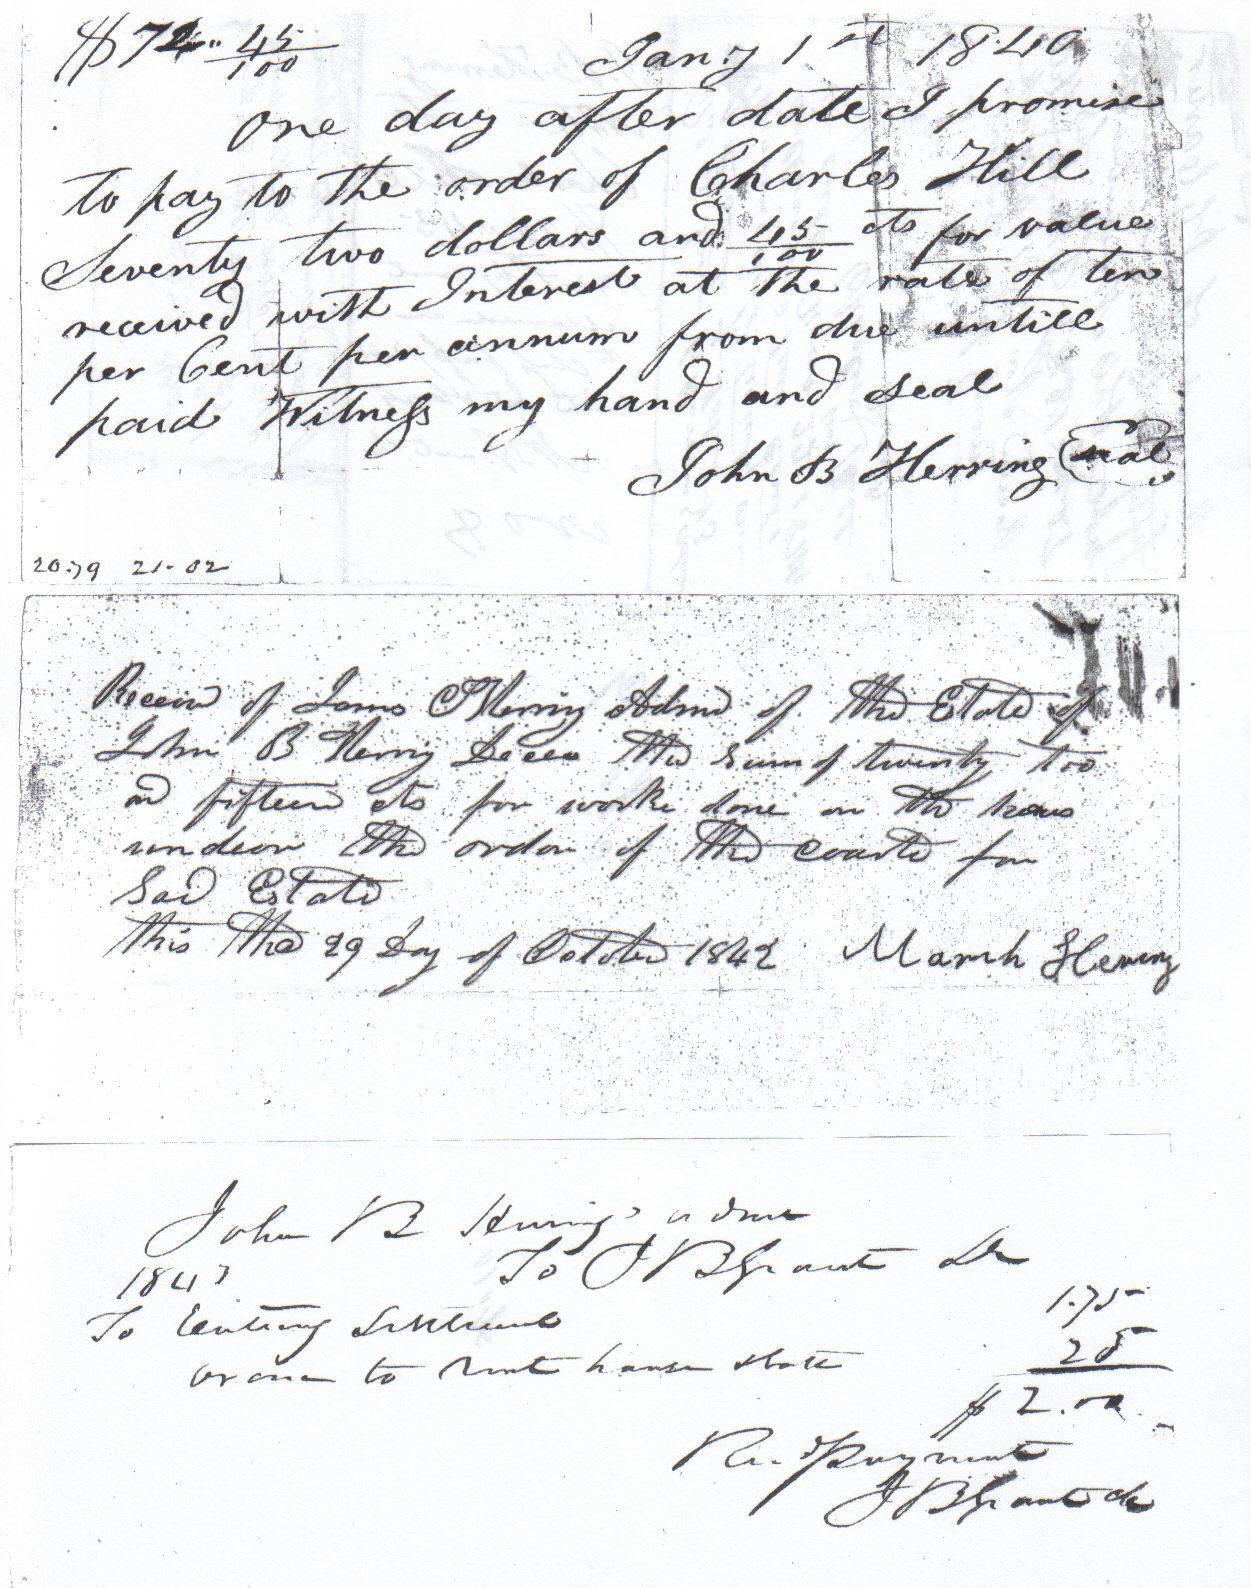 $72.. 45/100 Jany 1st 1840
One day after date I promise
to pay to the order of Charles Hill
Seventy two dollars and 45/100 cts for value
received with Interest at the rate of ten
per Cent per annum from due untill
paid Witness my hand and seal
John B Herring Seal
20.79 21-02
Receivd of James Herring Admr of the Estate of
John B Herring the sum of twenty too
and fifteen cts for worke done on the hous
under the order of the courte for
Sad Estate
this the 29 Day of October 1842 Marsh Herring
John B Herring's admr
1843 To J B Grant Dr
To Entering Settlement 1.75
order to rent house &
25
$2.00
Recd Payment
J B Grant clk